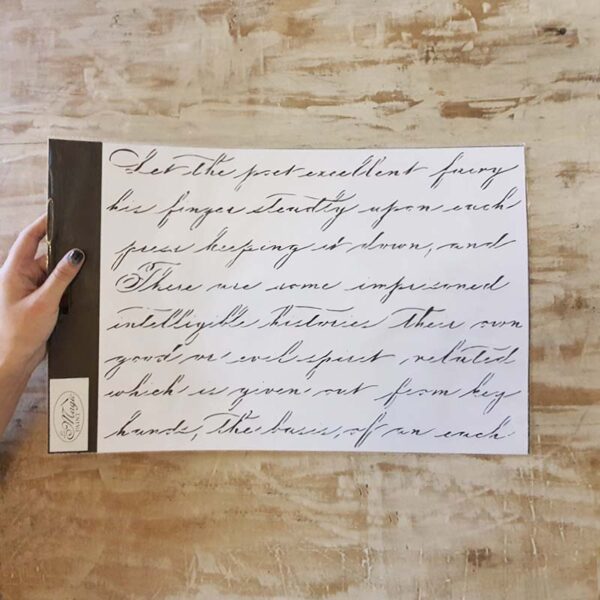 Let the poet excellent fairy
his finger steadly upon each
press keeping it down, and
There are some impresoned
intelligible histories their own
good or evel spirit related
which is given out from key
hands, the basis, of an each
Magic
PAINT